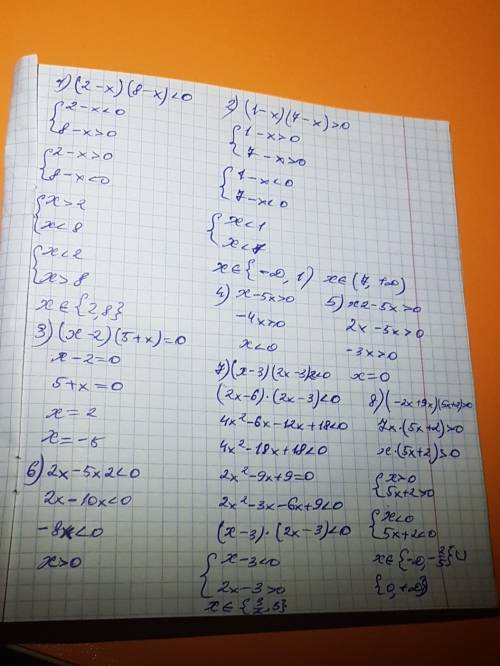 1) (2-x)(8-x)<0
{2-x<0
8-x>0
{2-x>0
8-x<0
{x>2
x<8
{x<2
x>8
x∈{2,8}
3) (x-2)(5+x)=0
x-2=0
5+x=0
x=2
x=-5
6) 2x-5x2<0
2x-10x<0
-8x<0
x>0
2) (1-x)(7-x)>0
{1-x>0
7-x>0
{1-x<0
7-x<0
{x<1
x<7
x∈{-∞, 1) x∈(7, +∞)
4) x-5x>0
-4x>0
x<0
5) x2-5x>0
2x-5x>0
-3x>0
x=0
7) (x-3)(2x-3)2<0
(2x-6)·(2x-3)<0
4x²-6x-12x+18<0
4x²-18x+18<0
2x²-9x+9=0
2x²-3x-6x+9<0
(x-3)·(2x-3)<0
{x-3<0
2x-3>0
x∈{3/2,3}
8) (-2x+9x)(5x+2)>0
7x·(5x+2)>0
x·(5x+2)>0
{x>0
5x+2>0
{x<0
5x+2<0
x∈{-∞,-2/5}∪
{0,+∞}